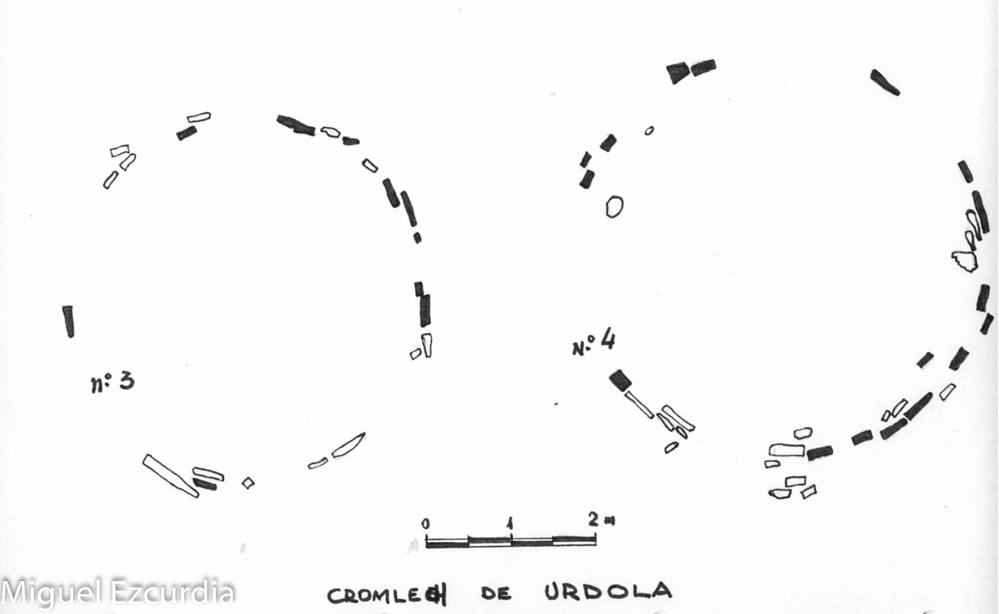 N.º 4
n.º 3
0 1 2 m
CROMLECH DE URDOLA
Miguel Ezcurdia